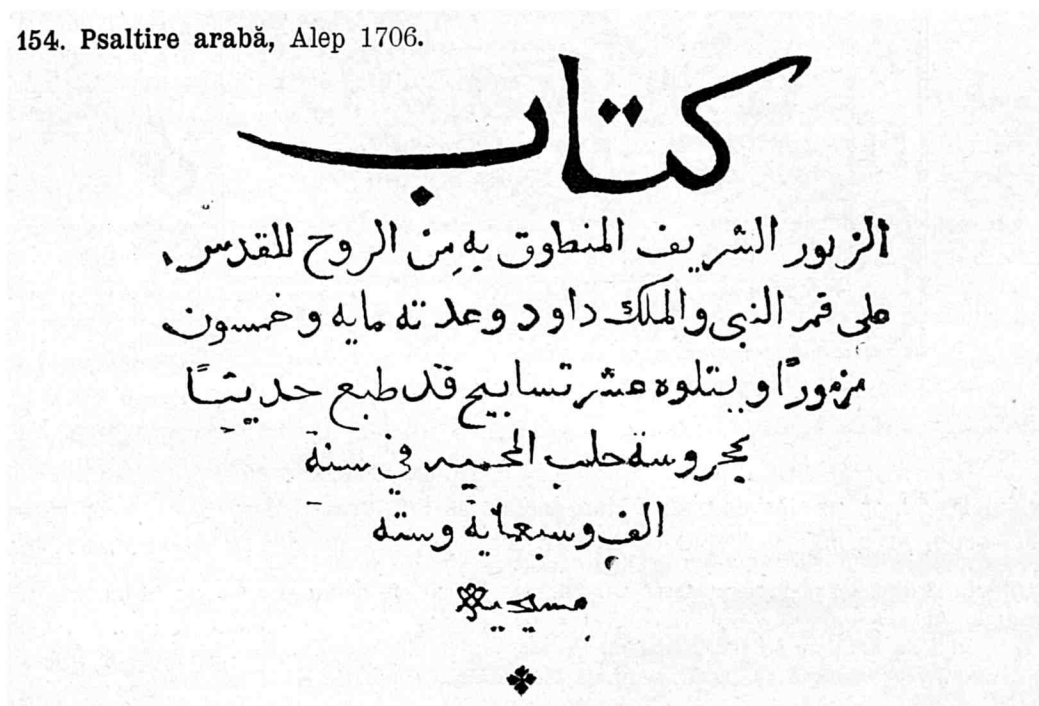 154. Psaltire arabă, Alep 1706.
كتاب
الزبور الشريف المنطوق به من الروح للقدس
على فمر النبي والملك داود وعدته مايه وخمسون
مزمورًا ويتلوه عشر تسابيح قد طبع حديثًا
بمحروسة حلب المحميه في سنة
الف وسبعماية وستة
مسيحية